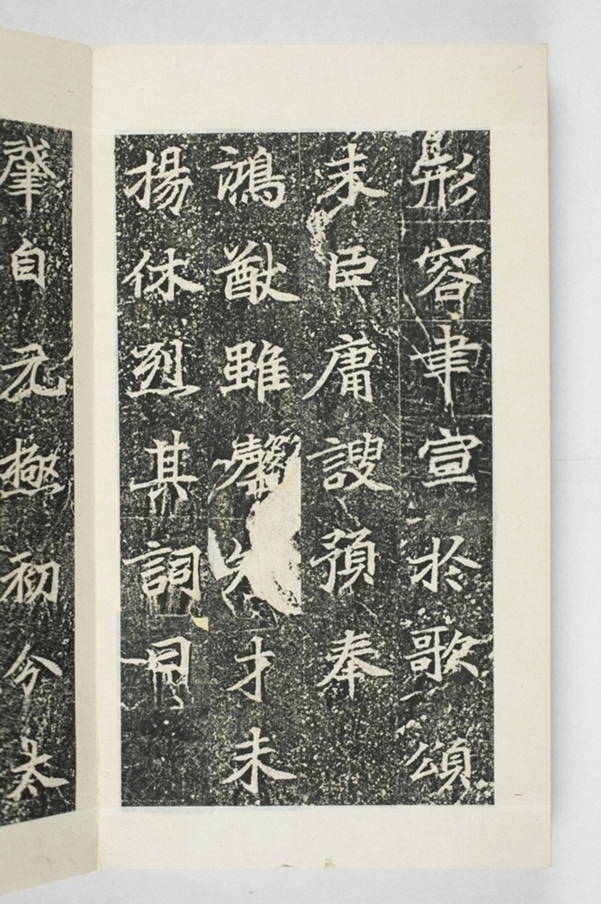 形容聿宣於歌頌
末臣庸謏預奉
鴻猷雖罄才未
揚休烈其詞曰
肇自元極初分太